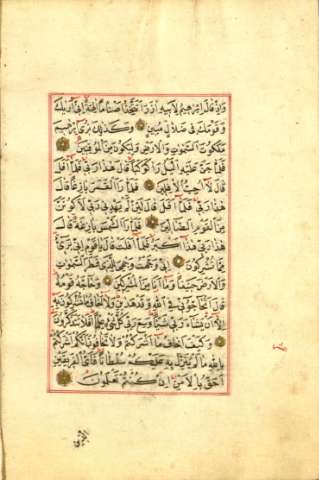 وَإِذْ قَالَ إِبْرٰهِيمُ لِأَبِيهِ آزَرَ أَتَتَّخِذُ أَصْنَامًا آلِهَةً إِنِّي أَرٰيكَ
وَقَوْمَكَ فِي ضَلَالٍ مُبِينٍ وَكَذٰلِكَ نُرِي إِبْرٰهِيمَ
مَلَكُوتَ السَّمٰوَاتِ وَالْأَرْضِ وَلِيَكُونَ مِنَ الْمُوقِنِينَ
فَلَمَّا جَنَّ عَلَيْهِ الَّيْلُ رَاٰ كَوْكَبًا قَالَ هٰذَا رَبِّي فَلَمَّا أَفَلَ
قَالَ لَا أُحِبُّ الْآفِلِينَ فَلَمَّا رَاَ الْقَمَرَ بَازِغًا قَالَ
هٰذَا رَبِّي فَلَمَّا أَفَلَ قَالَ لَئِنْ لَمْ يَهْدِنِي رَبِّي لَأَكُونَنَّ
مِنَ الْقَوْمِ الضَّالِّينَ فَلَمَّا رَاَ الشَّمْسَ بَازِغَةً قَالَ
هٰذَا رَبِّي هٰذَا أَكْبَرُ فَلَمَّا أَفَلَتْ قَالَ يَا قَوْمِ إِنِّي بَرِيءٌ
مِمَّا تُشْرِكُونَ إِنِّي وَجَّهْتُ وَجْهِيَ لِلَّذِي فَطَرَ السَّمٰوَاتِ
وَالْأَرْضَ حَنِيفًا وَمَا أَنَا مِنَ الْمُشْرِكِينَ وَحَاجَّهُ قَوْمُهُ
قَالَ أَتُحَاجُّونِّي فِي اللهِ وَقَدْ هَدٰينِ وَلَا أَخَافُ مَا تُشْرِكُونَ بِهِ
إِلَّا أَنْ يَشَاءَ رَبِّي شَيْئًا وَسِعَ رَبِّي كُلَّ شَيْءٍ عِلْمًا أَفَلَا تَتَذَكَّرُونَ
وَكَيْفَ أَخَافُ مَا أَشْرَكْتُمْ وَلَا تَخَافُونَ أَنَّكُمْ أَشْرَكْتُمْ
بِاللهِ مَا لَمْ يُنَزِّلْ بِهِ عَلَيْكُمْ سُلْطَانًا فَأَيُّ الْفَرِيقَيْنِ
أَحَقُّ بِالْأَمْنِ إِنْ كُنْتُمْ تَعْلَمُونَ